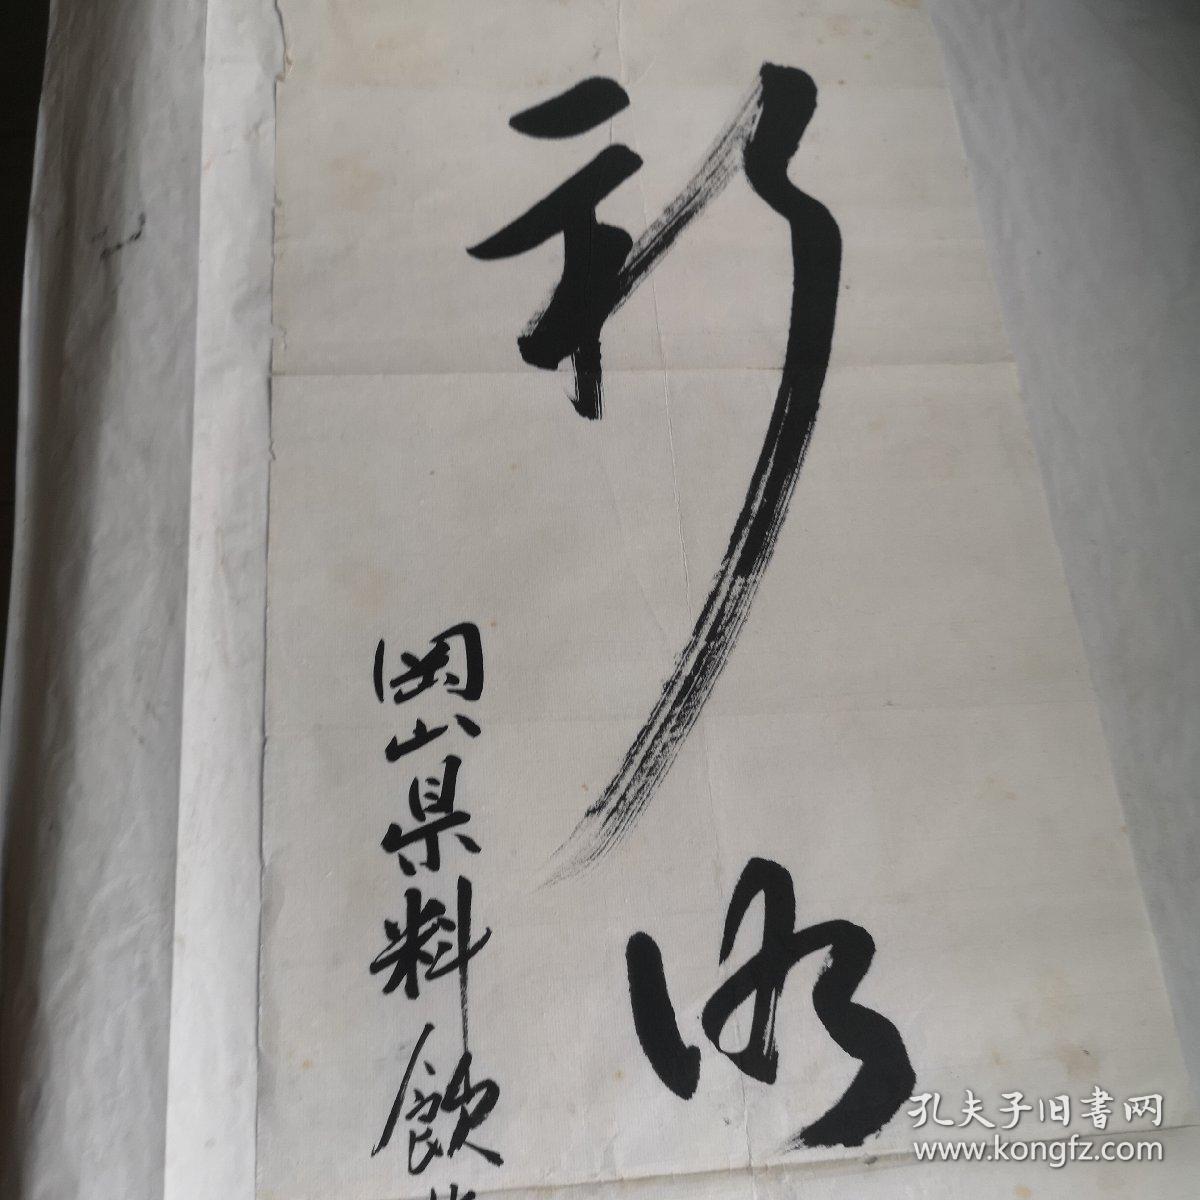 新
岡山県料飲
孔夫子旧書网
www.kongfz.com